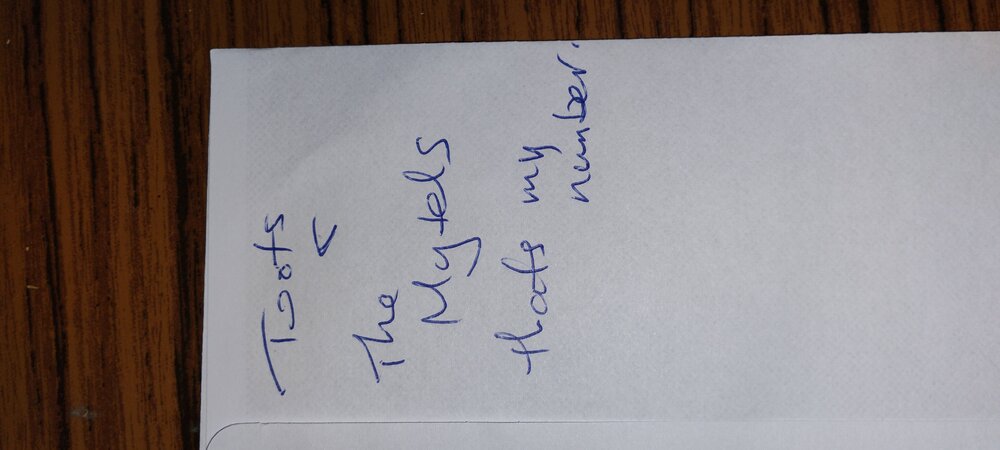 Toots
<
The
Mytels
thats my
number.